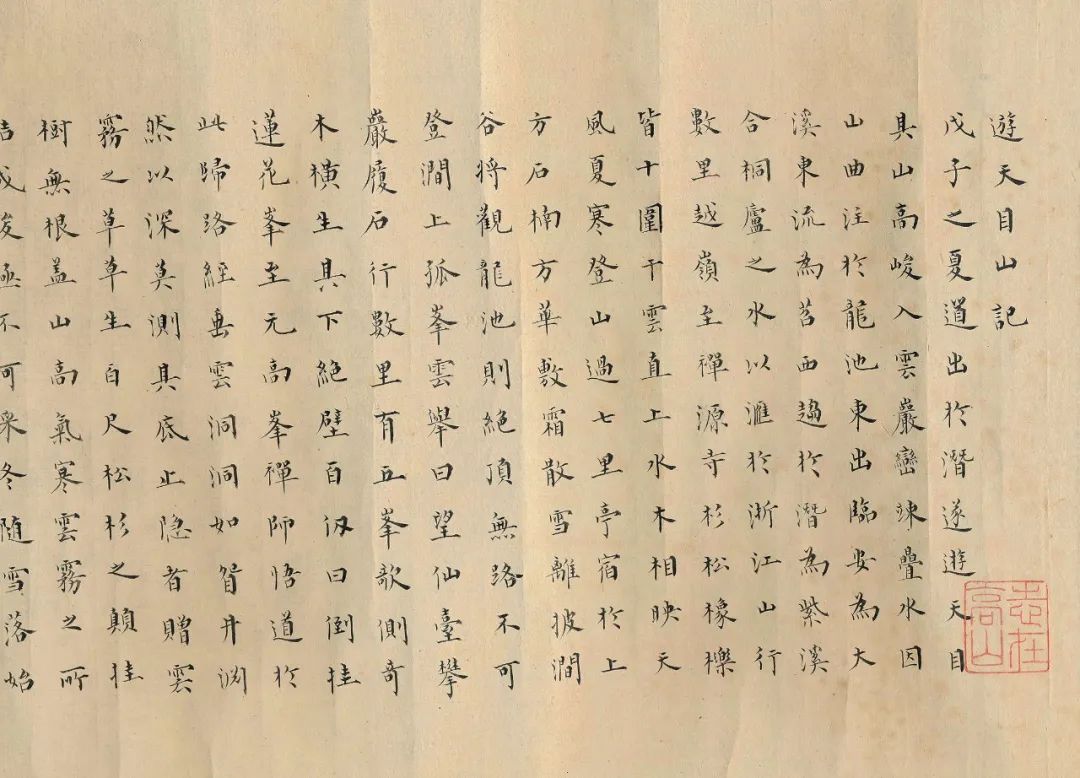 遊天目山記
戊子之夏道出於潛遂遊天目
其山高峻入雲巖巒竦疊水因
山曲注於龍池東出臨安為大
溪東流為苕西趨於潛為紫溪
合桐廬之水以滙於浙江山行
數里越嶺至禪源寺杉松橡櫟
皆十圍干雲直上水木相映天
風夏寒登山過七里亭宿於上
方石楠方華敷霜散雪離披澗
谷將觀龍池則絕頂無路不可
登澗上孤峯雲舉曰望仙臺攀
巖履石行數里有五峯欹側奇
木橫生其下絕壁百仞曰倒挂
蓮花峯至元高峯禪師悟道於
此歸路經垂雲洞洞如眢井渊
然以深莫測其底止隐者贈雲
霧之草草生百尺松杉之顛挂
樹無根盖山高氣寒雲霧之所
結成峻極不可采冬随雪落始
志在高山